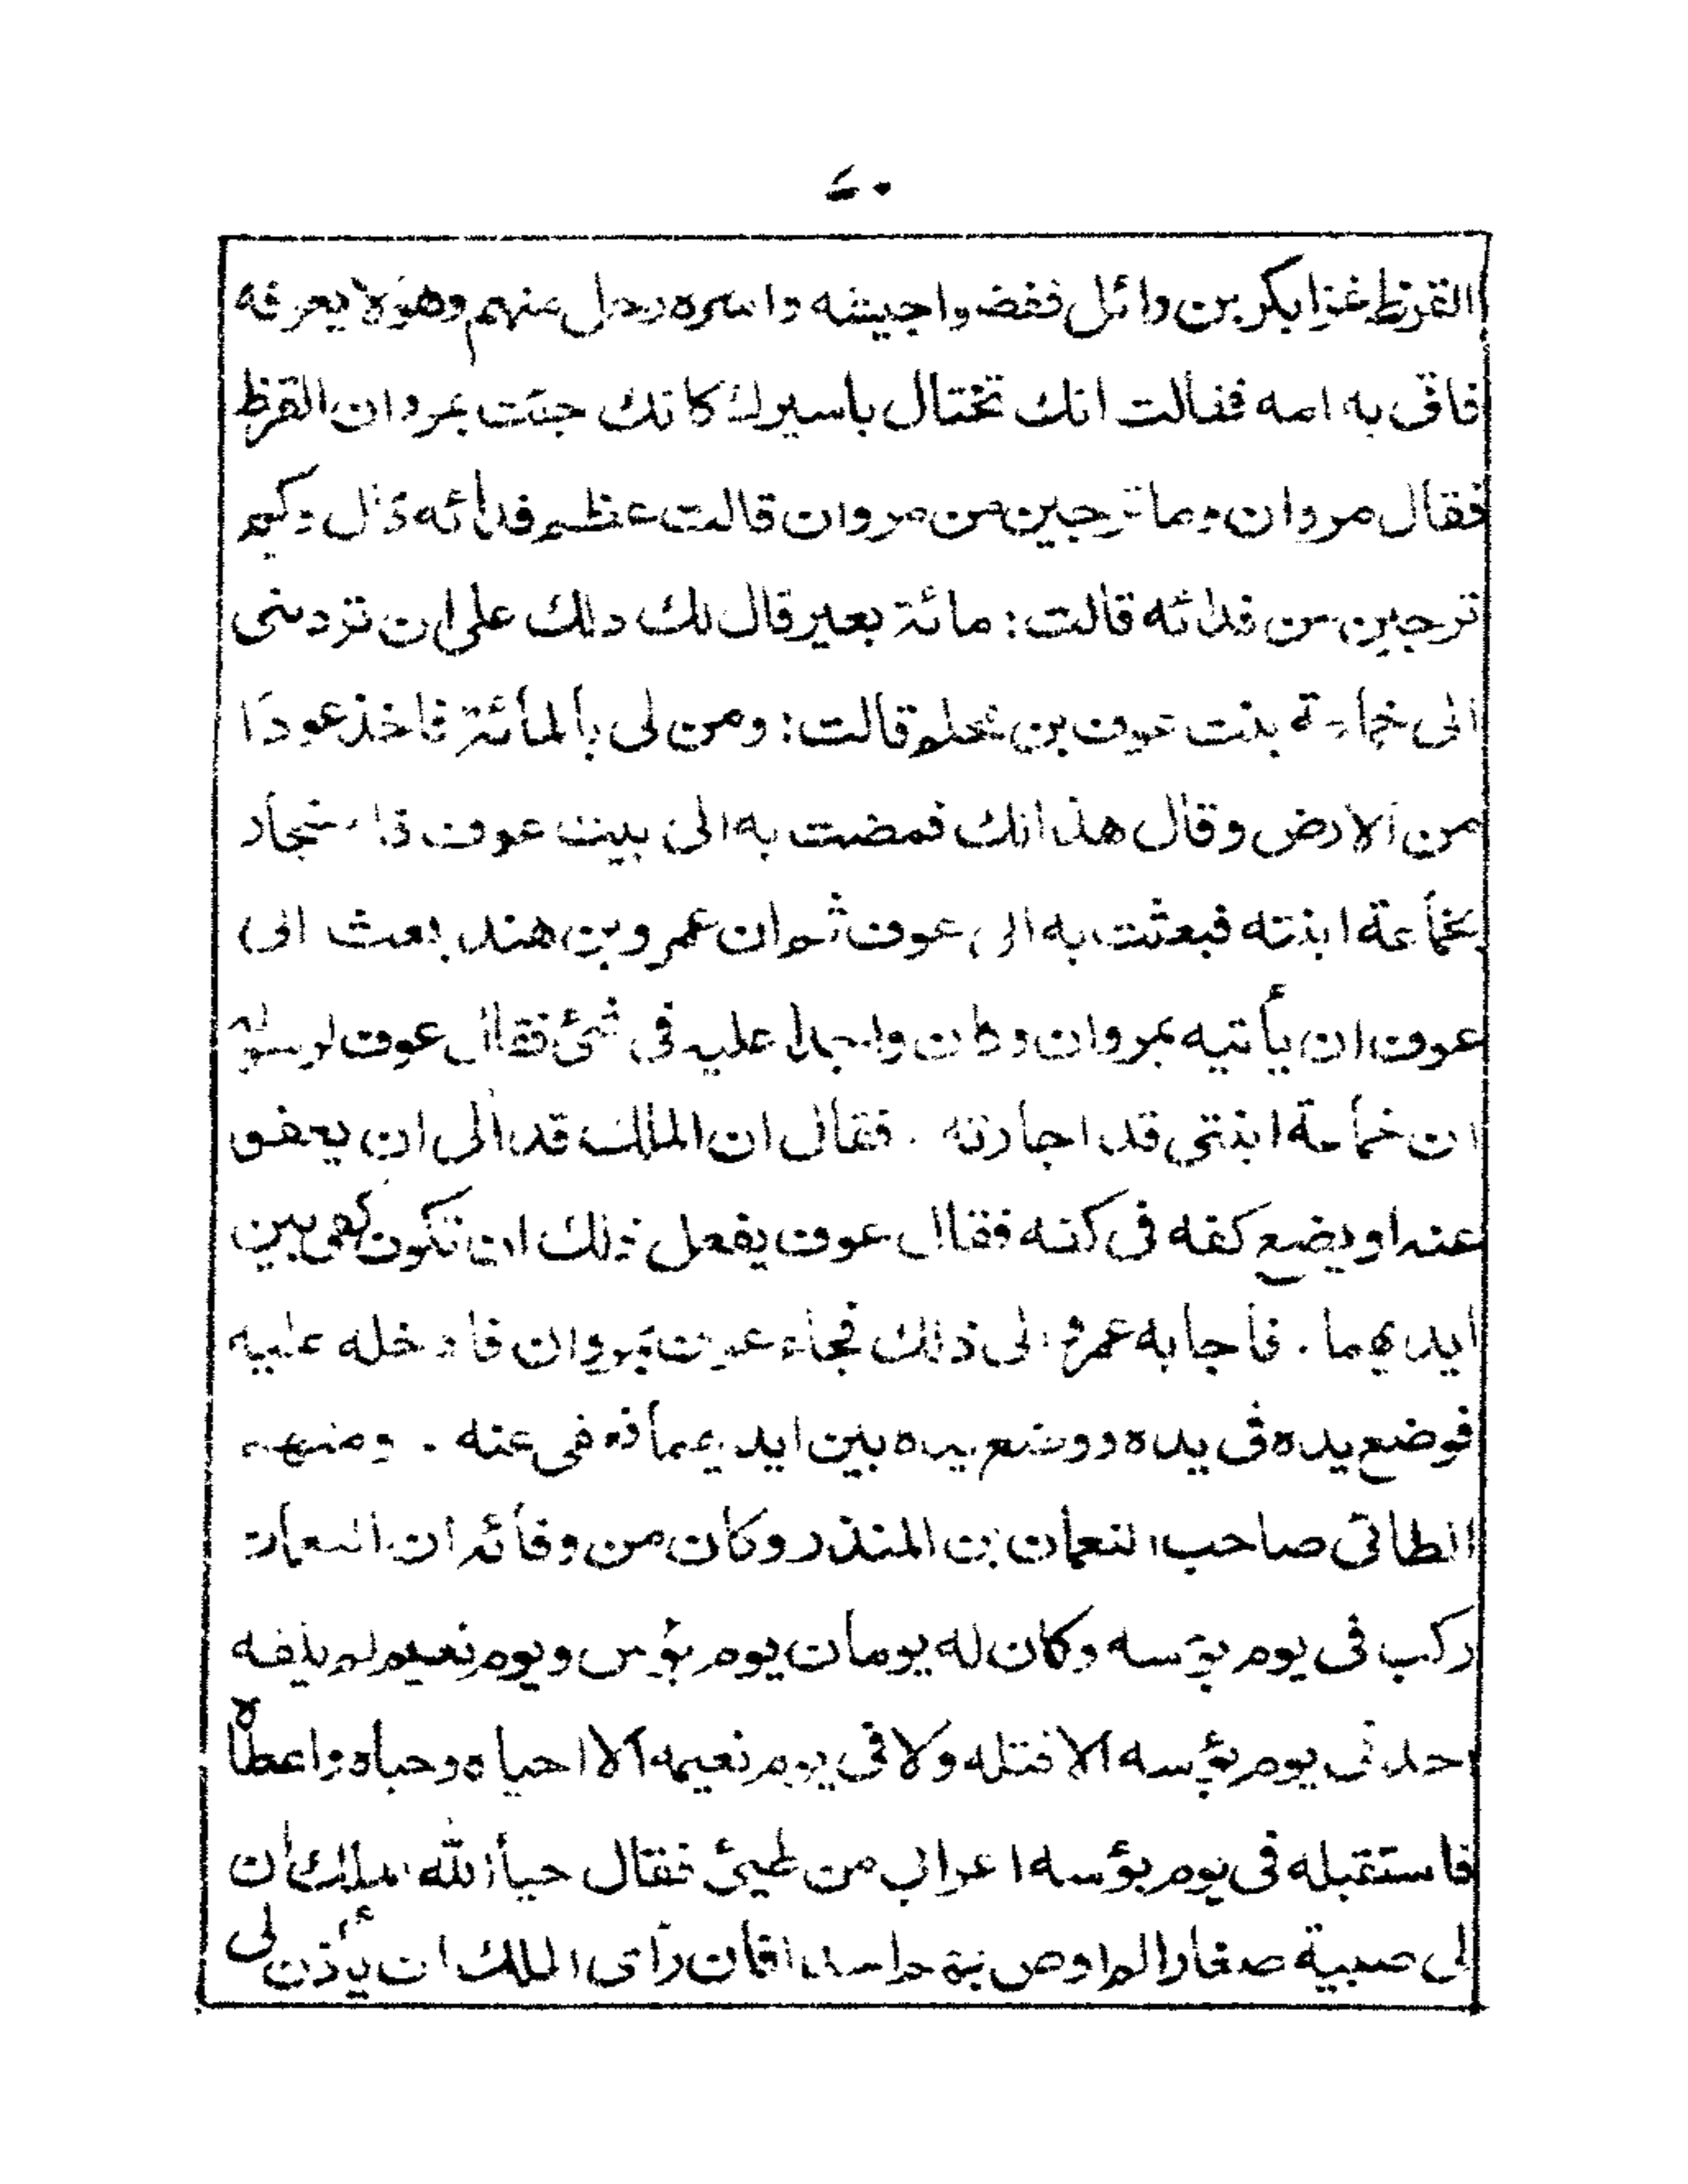 القرظ غزا بكر بن وائل ففضوا جيشه واسره رجل منهم وهو لا يعرفه
فاتى به امه فقالت انك تختال باسيرك كانك جئت بمروان القرظ
فقال مروان وما ترجين من مروان قالت عظم فدائه قال وكم
ترجين من فدائه قالت: مائة بعير قال لك ذلك على ان تردينى
الى خماعة بنت عوف بن محلم قالت: ومن لى بالمائة فاخذ عودا
من الارض وقال هذا لك فمضت به الى بيت عوف فاستجار
بخماعة ابنته فبعثت به الى عوف ثم ان عمرو بن هند بعث الى
عوف ان يأتيه بمروان وكان واجدا عليه فى شئ فقال عوف لرسوله
ان خماعة ابنتى قد اجارته . فقال ان الملك قد الى ان يعفو
عنه او يضع كفه فى كفه فقال عوف يفعل ذلك ان تكون كفى بين
ايديهما . فاجابه عمرو الى ذلك فجاء عوف بمروان فادخله عليه
فوضع يده فى يده ووضع يده بين ايديهما فعفى عنه . ومنهم
الطائى صاحب النعمان بن المنذر وكان من وفائه ان النعمان
ركب فى يوم بؤسه وكان له يومان يوم بؤس ويوم نعيم لم يلقه
احد فى يوم بؤسه الا قتله ولا فى يوم نعيمه الا احياه وحباه واعطاه
فاستقبله فى يوم بؤسه اعرابى من طيئ فقال حيا الله الملك ان
لى صبية صغارا لم اوص بهم احدا فان رأى الملك ان يأذن لى